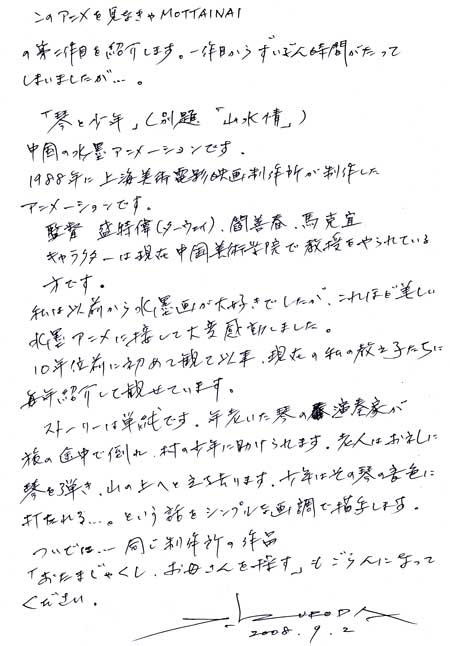 このアニメを見なきゃMOTTAINAI
の第二作目を紹介します。一作目からずいぶん時間がたって
しまいましたが…。
「琴と少年」(別題「山水情」)
中国の水墨アニメーションです。
1988年に上海美術電影映画制作所が制作した
アニメーションです。
監督 盛特偉(ターウェイ)、閻善春、馬克宜
キャラクターは現在中国美術学院で教授をやられている
方です。
私は以前から水墨画が大好きでしたが、これほど美しい
水墨アニメに接して大変感動しました。
10年位前に初めて観て以来、現在の私の教え子たちに
毎年紹介して観せています。
ストーリーは単純です。年老いた琴の演奏家が
旅の途中で倒れ、村の少年に助けられます。老人はお礼に
琴を弾き、山の上へと立ち去ります。少年はその琴の音色に
打たれる…。という話をシンプルな画調で描写します。
ついでは…同じ制作所の作品
「おたまじゃくし、お母さんを探す」もごらんになって
ください。
KURODA
2008.9.2